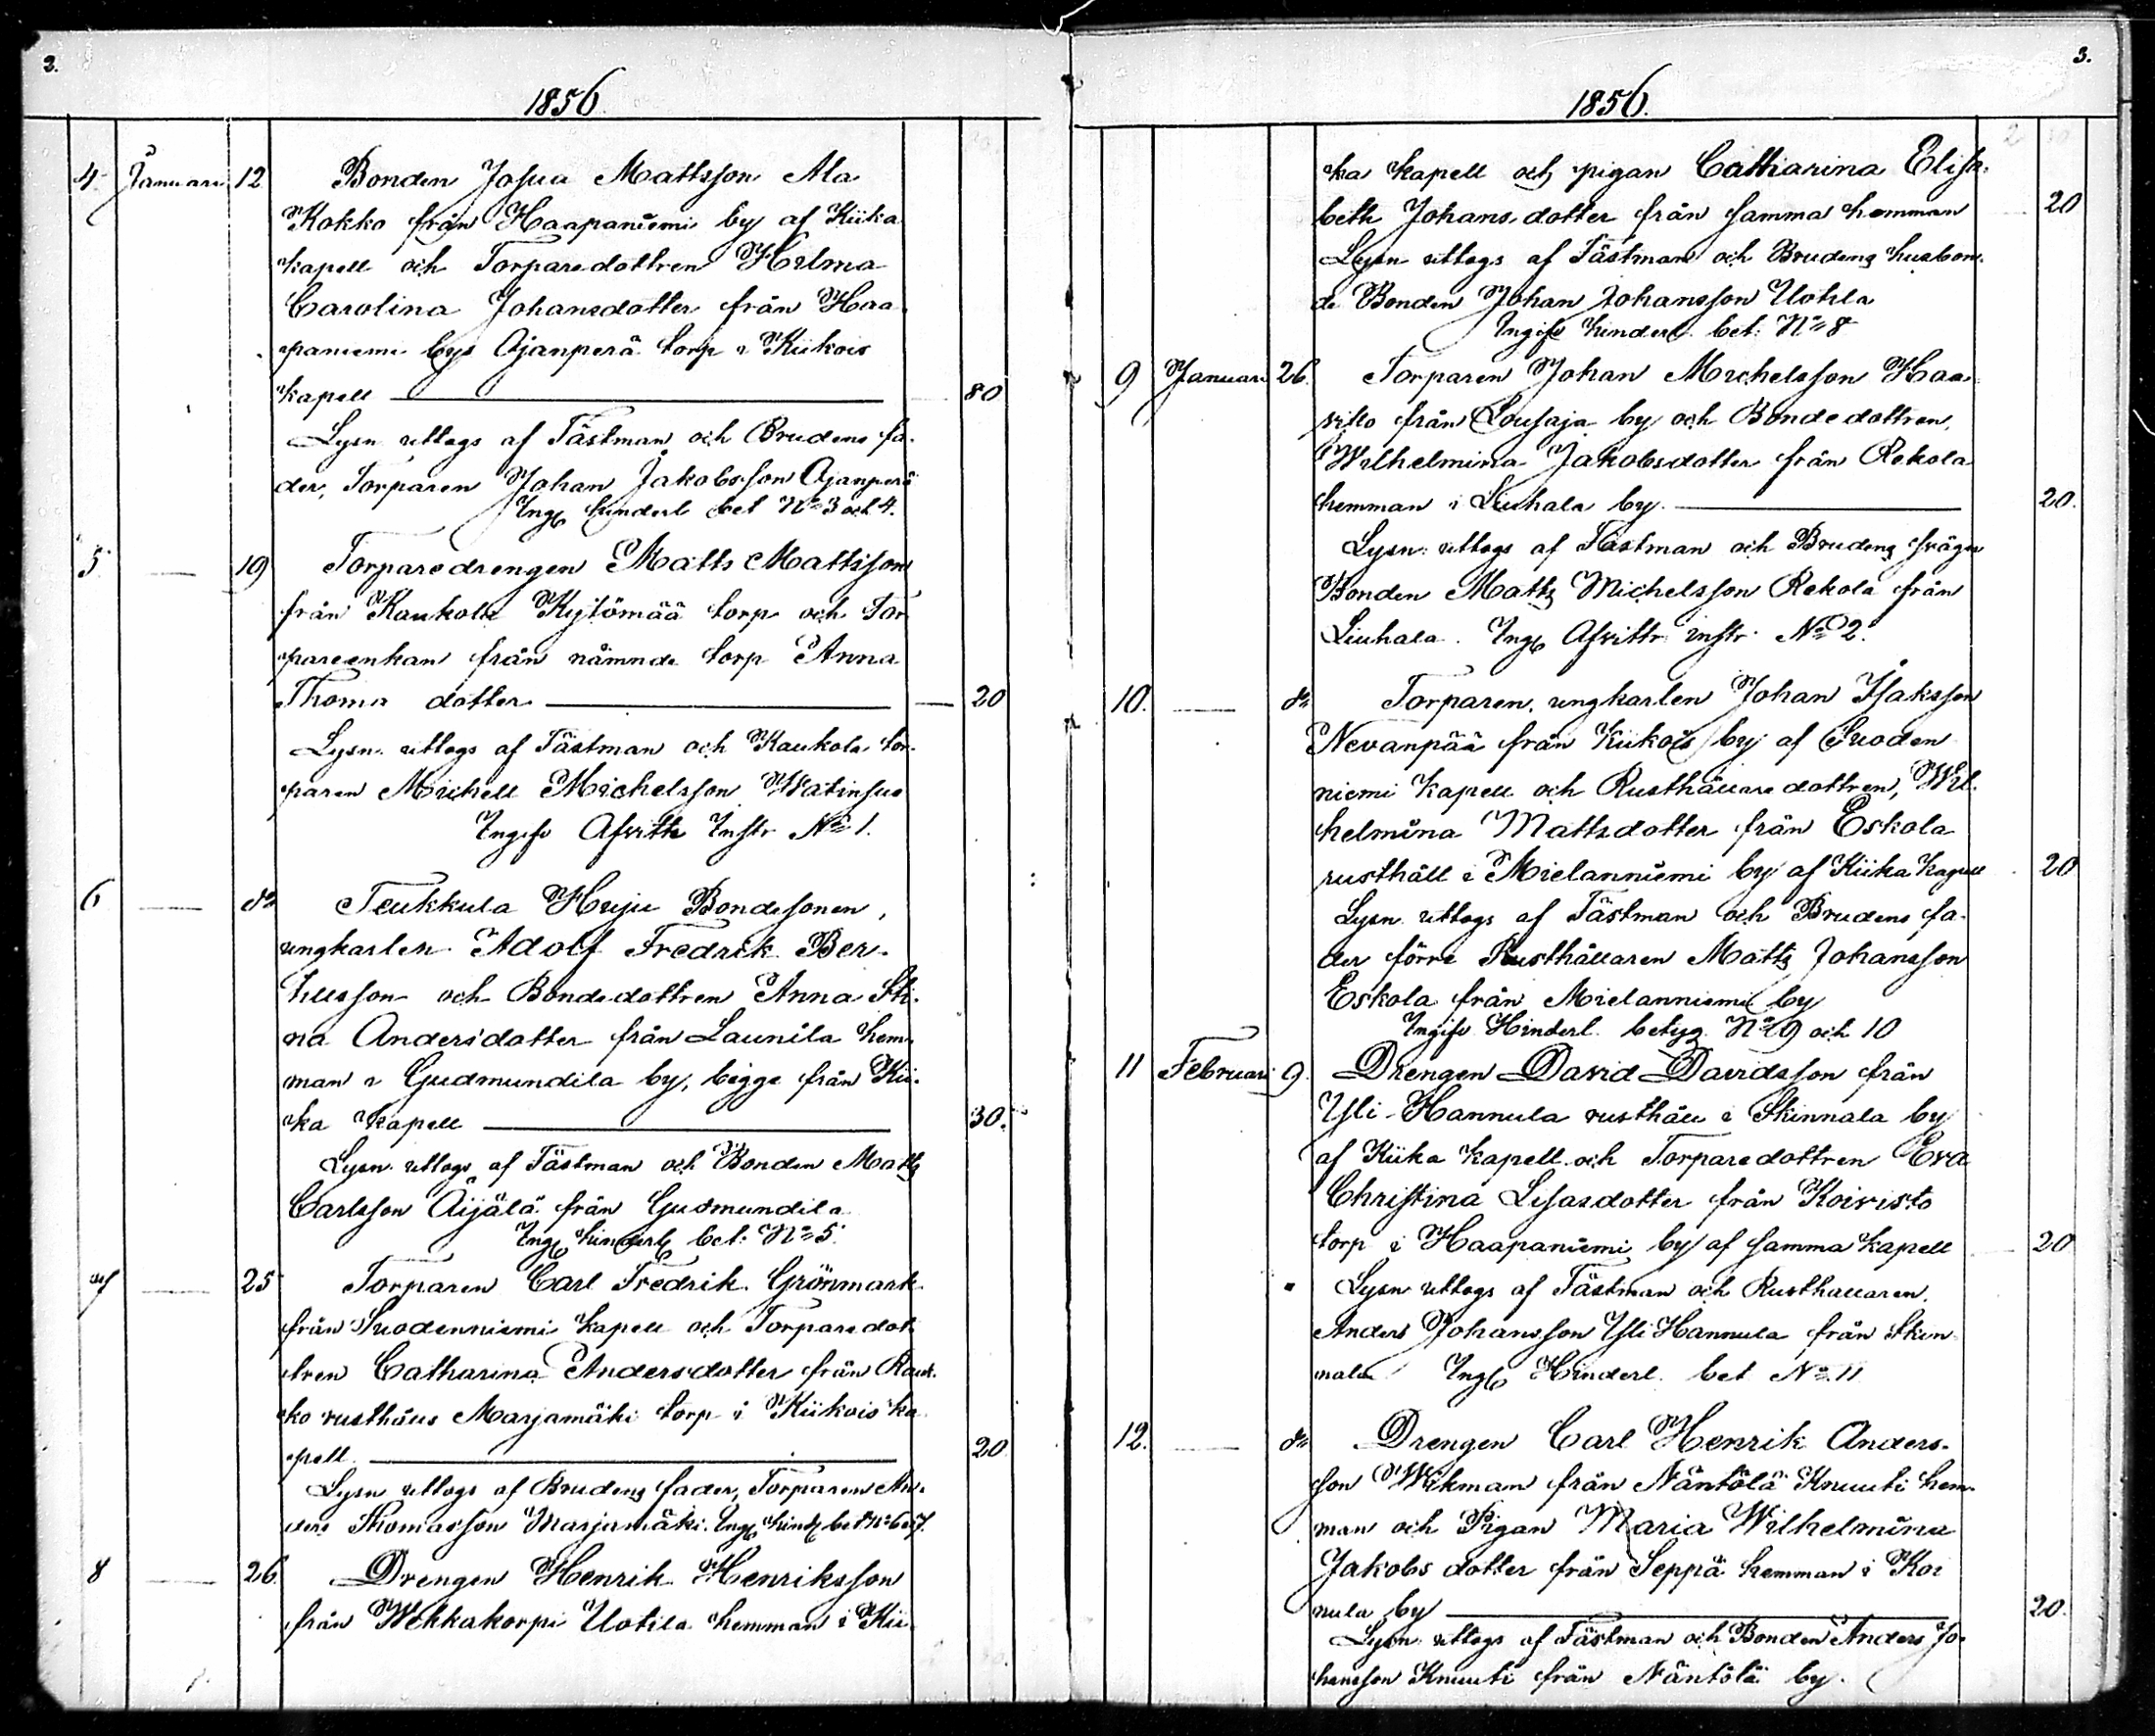 2.
1856.
4. Januari 12 Bonden Josua Mattsson Ala
Kokko från Haapaniemi by af Kiika
kapell och Torparedottren Helma
Carolina Johansdotter från Haa
paniemi bys Ojanperä torp i Kiikois
kapell 80
Lysn uttogs af Fästman och Brudens fa-
der, Torparen Johan Jakobsson Ojanperä
Ing hinderl bet No 3 och 4.
5 — 19 Torparedrengen Matts Mattsson
från Kaukola Kytömää torp och Tor
pareenkan från nämnde torp Anna
Thoma dotter — 20
Lysn. uttogs af Fästman och Kaukola tor-
paren Michell Michelsson Watinsuo
Ingifv Afvittr Instr No 1.
6 — do Teukkula Huju Bondesonen,
ungkarlen Adolf Fredrik Ber-
tillsson och Bondedottren Anna Sti-
na Andersdotter från Launila hem-
man i Gudmundila by, bägge från Kii-
ka kapell 30.
Lysn. uttogs af Fästman och Bonden Matts
Carlsson Äijälä från Gudmundila
Ing hinderl bet: No 5.
7 — 25 Torparen Carl Fredrik Grönmark
från Suodenniemi kapell och Torparedot
tren Catharina Andersdotter från Rau-
ko rusthålls Marjamäki torp i Kiikois ka
pell. 20
Lysn uttogs af Brudens fader, Torparen An-
ders Thomasson Marjamäki. Ing hind bet No 6 o 7.
8 — 26. Drengen Henrik Henriksson
från Wokkakorpi Uotila hemman i Kii-
3.
1856.
ka kapell och pigan Catharina Elisa-
beth Johans dotter från samma hemman 20
Lysn uttogs af Fästman och Brudens husbon-
de Bonden Johan Johansson Uotila
Ingifv hinderl. bet: No 8
9 Januari 26. Torparen Johan Michelsson Haa-
visto från Lousaja by och Bondedottren,
Wilhelmina Jakobsdotter från Rekola
hemman i Liuhala by. 20.
Lysn: uttogs af Fästman och Brudens svåger
Bonden Matts Michelsson Rekola från
Liuhala. Ing Afvittr instr No 2.
10. — do Torparen, ungkarlen Johan Isaksson
Nevanpää från Kiikois by af Suoden
niemi kapell och Rusthållare dottren, Wil-
helmina Mattsdotter från Eskola
rusthåll i Mielanniemi by af Kiika kapell 20
Lysn uttogs af Fästman och Brudens fa-
der förre Rusthållaren Matts Johansson
Eskola från Mielanniemi by
Ingifv Hinderl. betyg No 9 och 10
11 Februari 9. Drengen David Davidsson från
Yli-Hannula rusthåll i Skinnala by
af Kiika kapell och Torparedottren Eva
Christina Lisasdotter från Koivisto
torp i Haapaniemi by af samma kapell 20
Lysn uttogs af Fästman och Rusthållaren.
Anders Johansson Yli Hannula från Skin
nala Ing Hinderl. bet No 11
12. — do Drengen Carl Henrik Anders-
son Wikman från Näntölä Knuuti hem-
man och Pigan Maria Wilhelmina
Jakobs dotter från Seppä hemman i Koi
nula by 20.
Lysn: uttogs af Fästman och Bonden Anders Jo-
hansson Knuuti från Näntölä by.